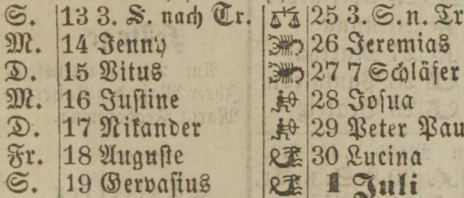 S. 13 3. S. nach Tr. 25 3. S. n. Tr
M. 14 Jenny 26 Jeremias
D. 15 Vitus 27 7 Schläfer
M. 16 Justine 28 Josua
D. 17 Nikander 29 Peter Pau
Fr. 18 Auguste 30 Lucina
S. 19 Gervasius 1 Juli